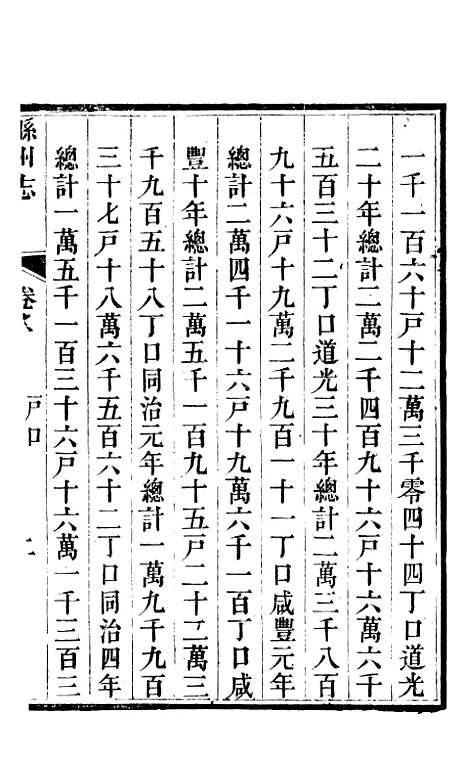 一千一百六十戸十二萬三千零四十四丁口道光
二十年總計二萬二千四百九十六戸十六萬六千
五百三十二丁口道光三十年總計二萬三千八百
九十六戸十九萬二千九百一十一丁口咸豐元年
總計二萬四千一十六戸十九萬六千一百丁口咸
豐十年總計二萬五千一百九十五戸二十二萬三
千九百五十八丁口同治元年總計一萬九千九百
三十七戸十八萬六千五百六十二丁口同治四年
總計一萬五千一百三十六戸十六萬一千三百三
州志
卷
戸口
二